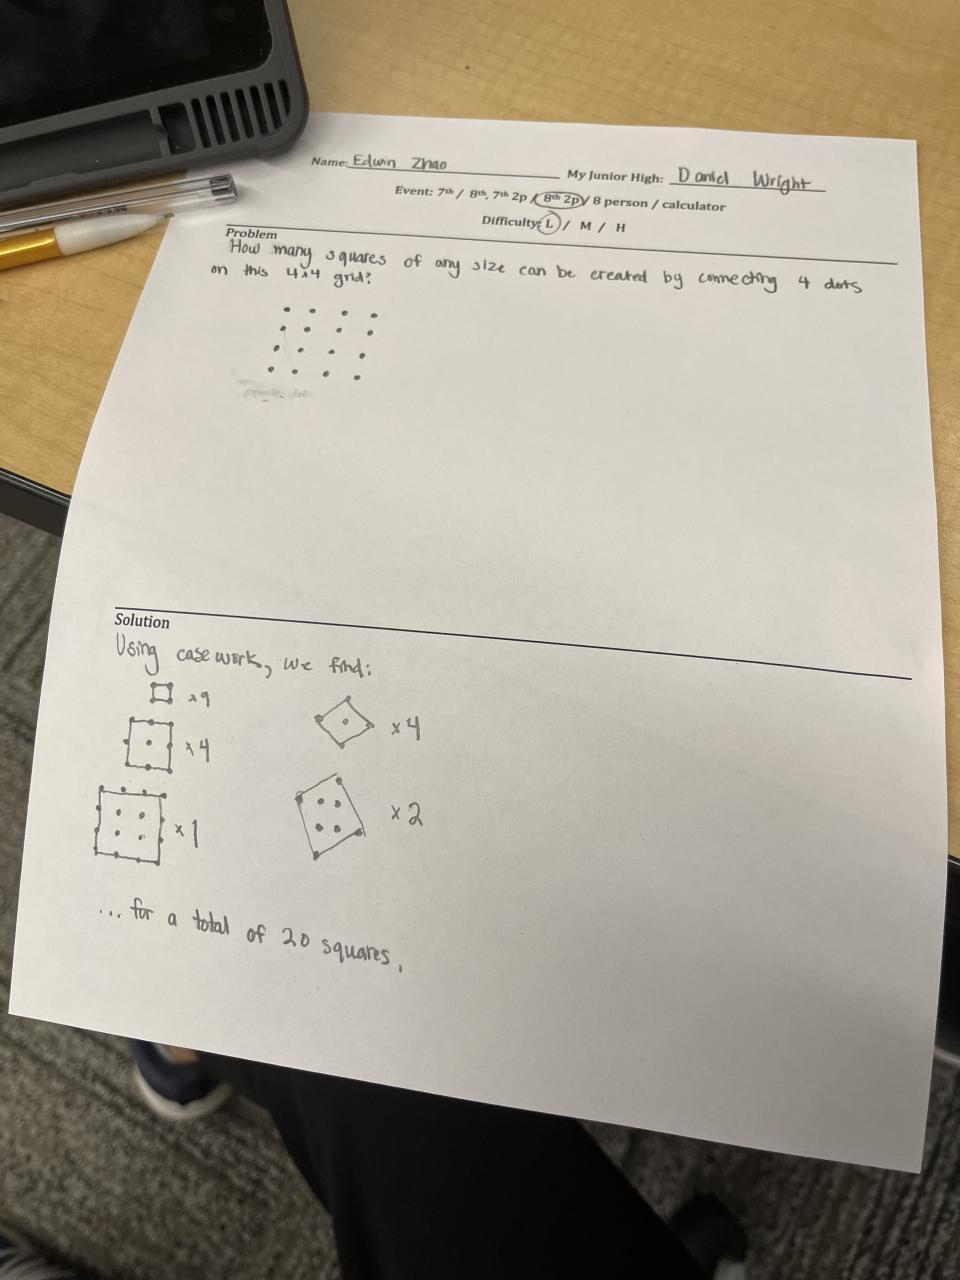 Name: Edwin Zhao My Junior High: Daniel Wright
Event: 7th / 8th, 7th 2p / 8th 2p / 8 person / calculator
Difficulty: L / M / H
Problem
How many squares of any size can be created by connecting 4 dots
on this 4x4 grid?
Solution
Using casework, we find:
x9
x4
x4
x2
x1
... for a total of 20 squares.